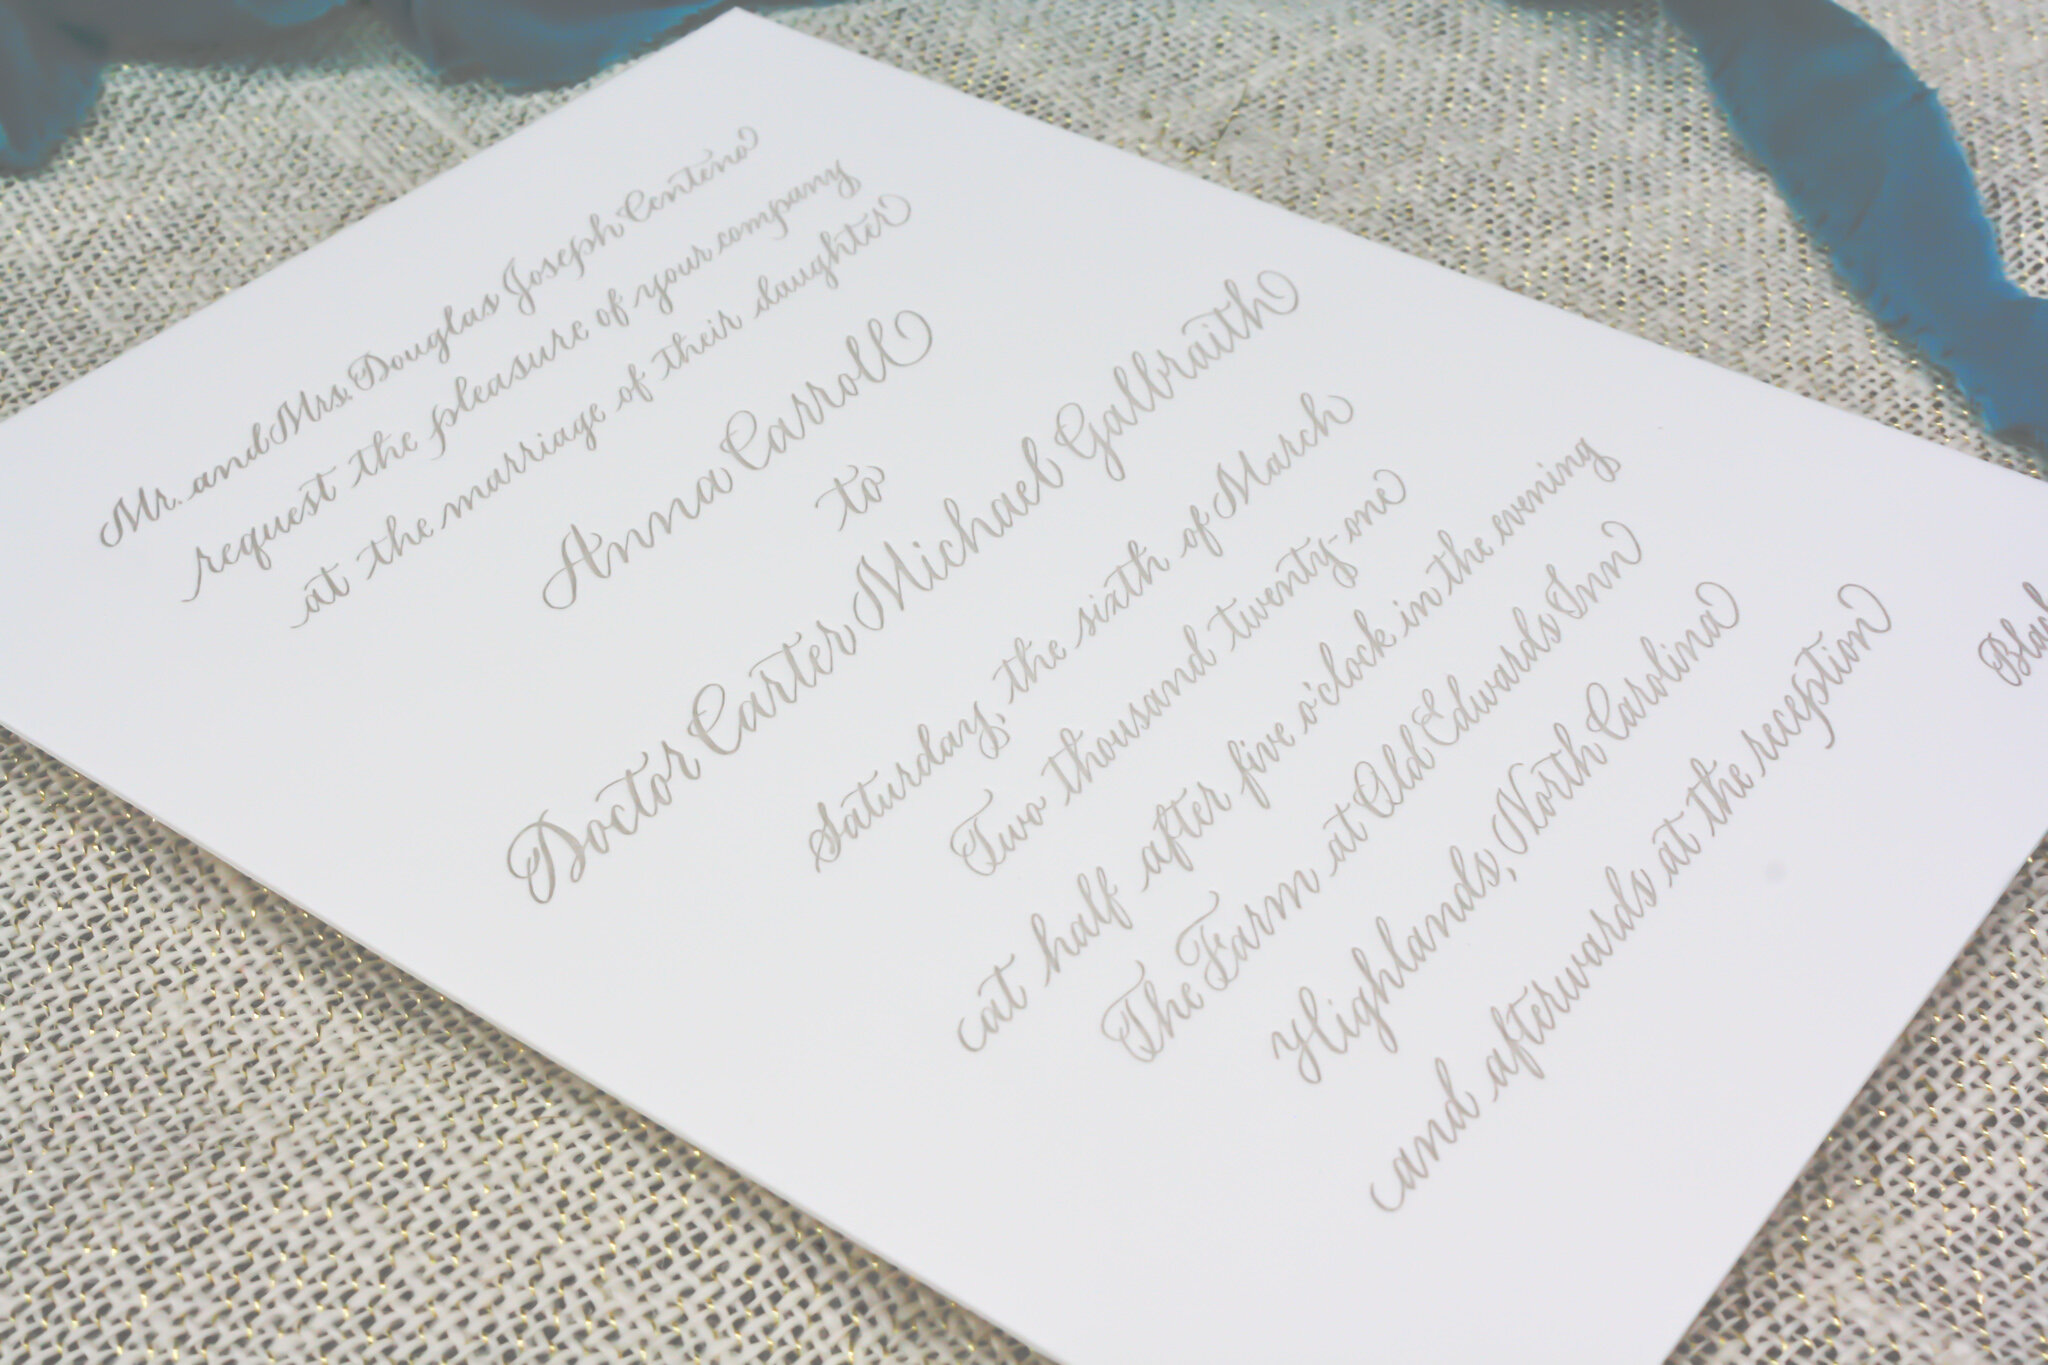 Mr. and Mrs. Douglas Joseph Centeno
request the pleasure of your company
at the marriage of their daughter
Anna Carroll
to
Doctor Carter Michael Galbraith
Saturday, the sixth of March
Two thousand twenty-one
at half after five o'clock in the evening
The Farm at Old Edwards Inn
Highlands, North Carolina
and afterwards at the reception